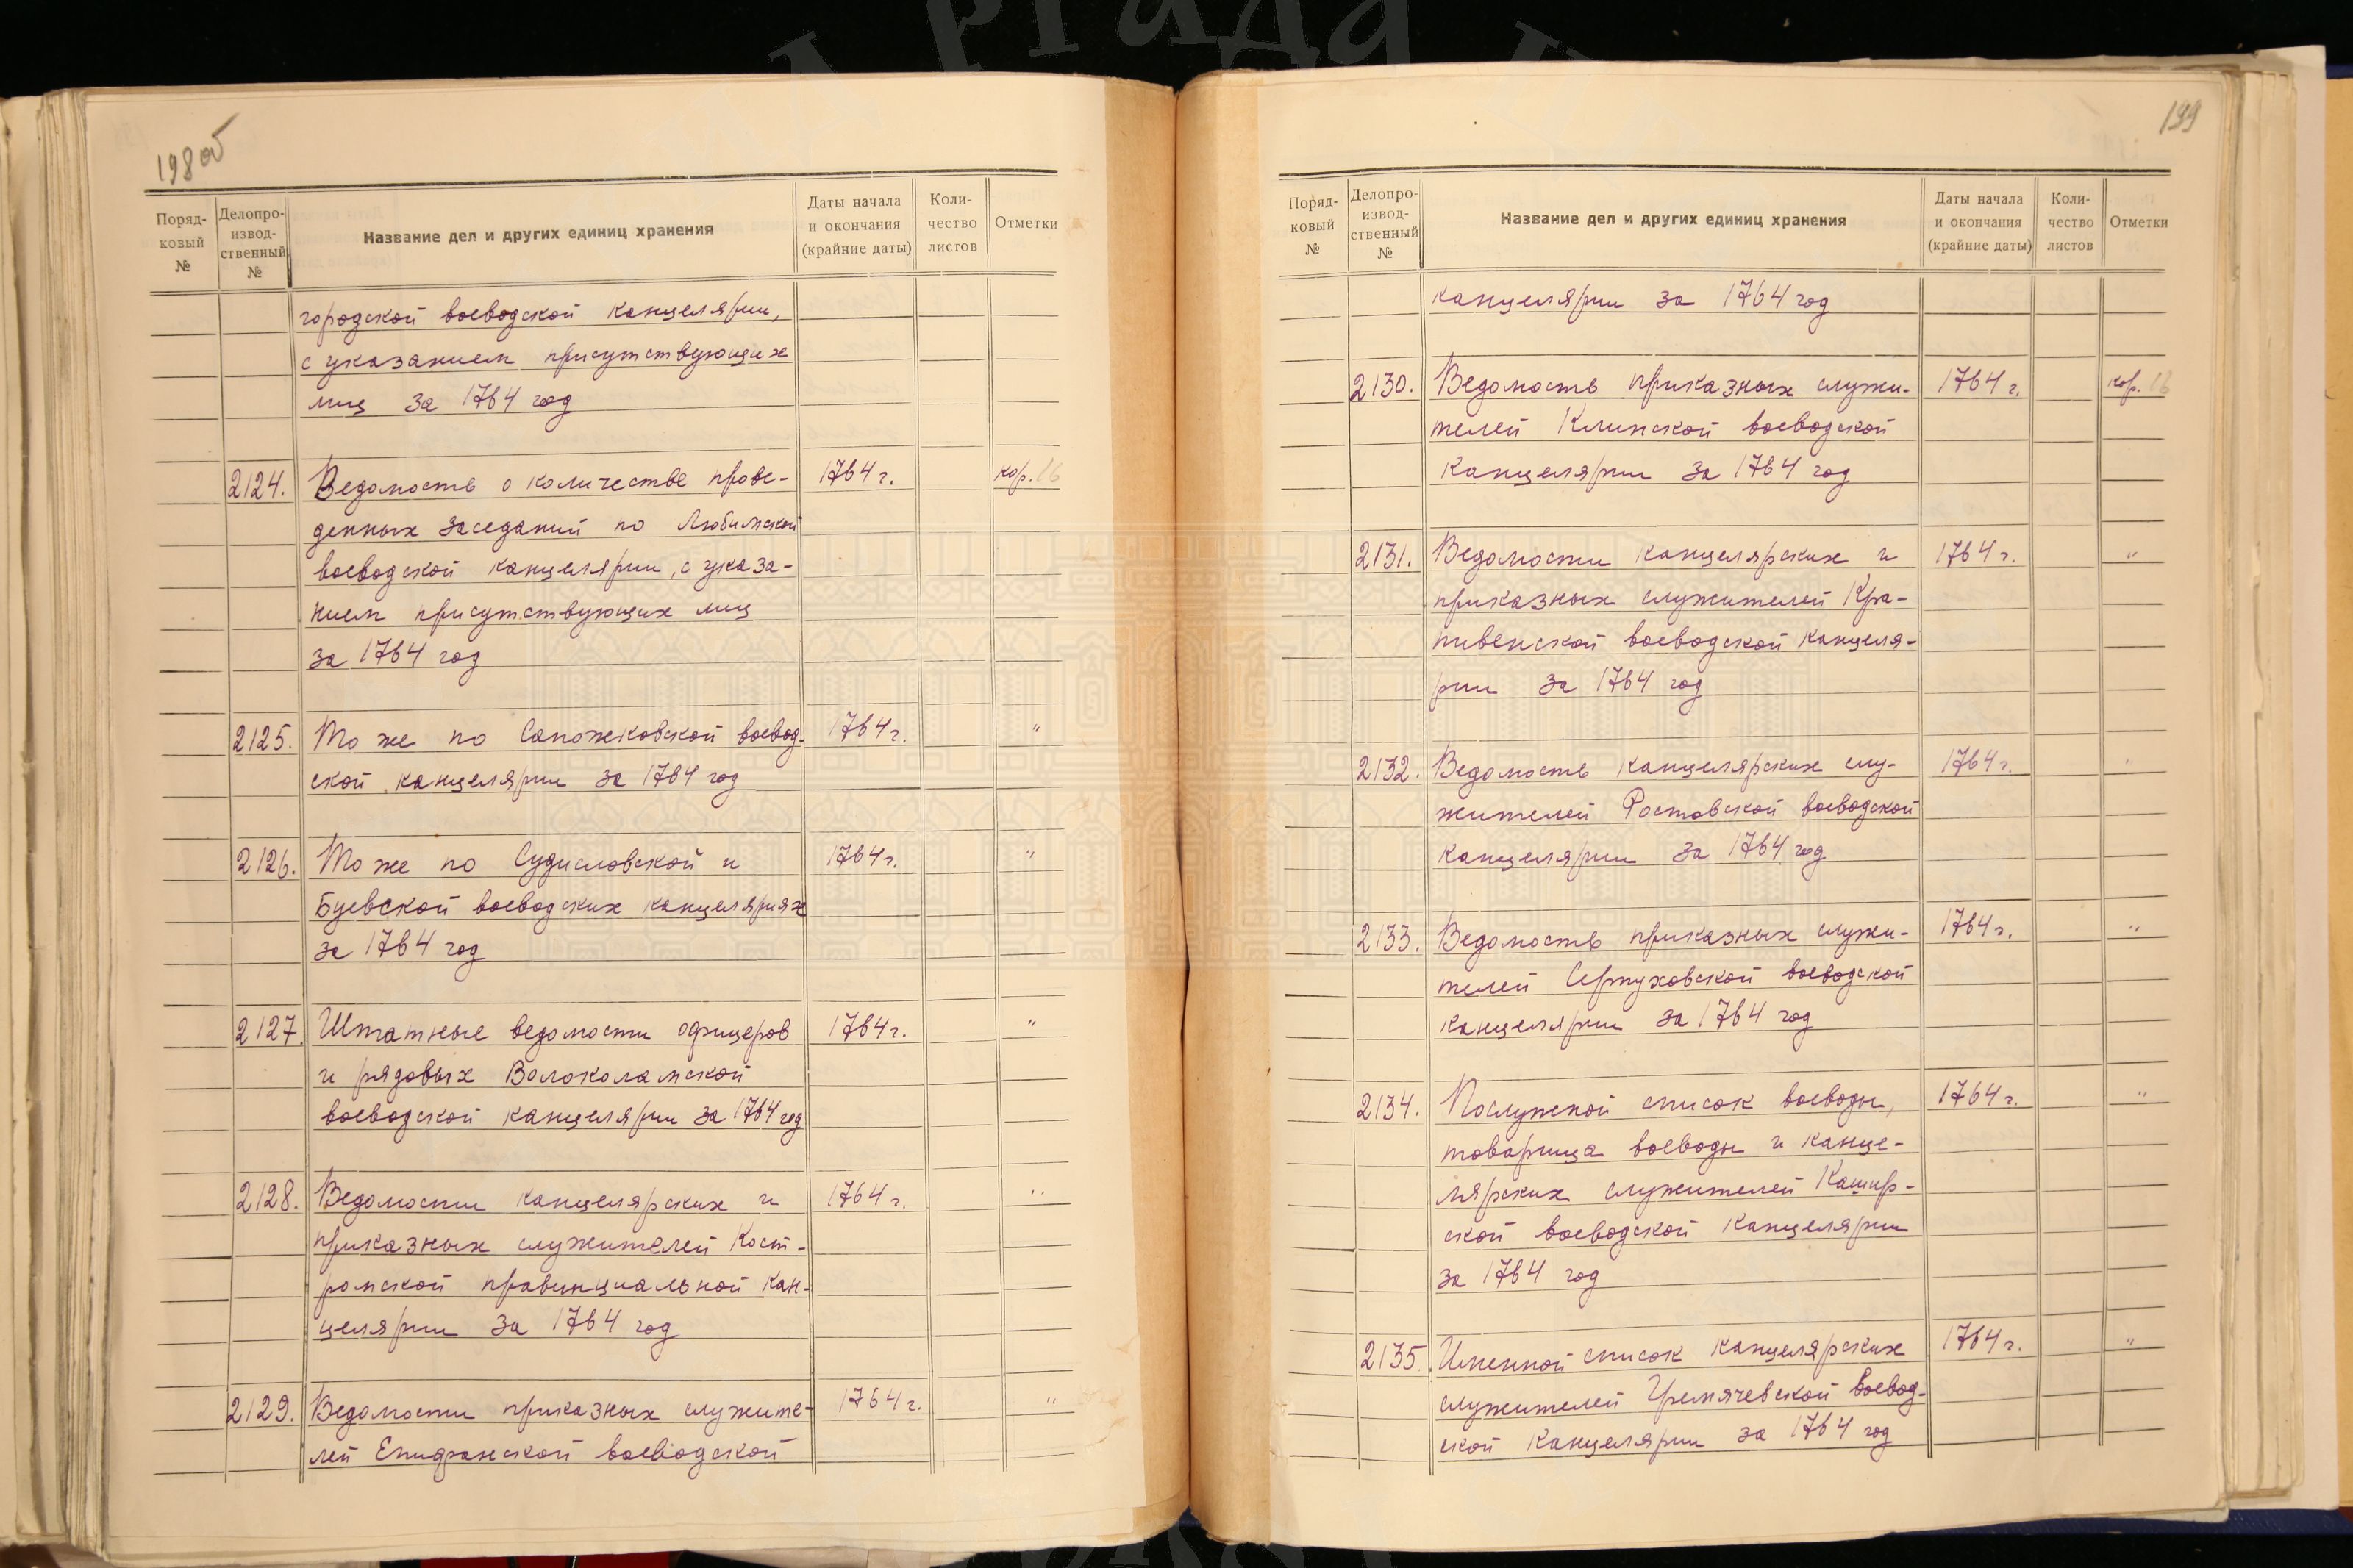 198об
Поряд-
ковый
№
Делопро-
извод-
ственный
№
Название дел и других единиц хранения
Даты начала
и окончания
(крайние даты)
Коли-
чество
листов
Отметки
городской воеводской канцелярии,
с указанием присутствующих
лиц за 1764 год
2124. Ведомость о количестве прове- 1764 г. кор. 16
денных заседаний по Любимской
воеводской канцелярии, с указа-
нием присутствующих лиц
за 1764 год
2125. То же по Сапожковской воевод- 1764 г. "
ской канцелярии за 1764 год
2126. То же по Судисловской и 1764 г. "
Буевской воеводских канцеляриях
за 1764 год
2127. Штатные ведомости офицеров 1764 г. "
и рядовых Волоколамской
воеводской канцелярии за 1764 год
2128. Ведомости канцелярских и 1764 г. "
приказных служителей Кост-
ромской провинциальной кан-
целярии за 1764 год
2129. Ведомости приказных служите- 1764 г. "
лей Епифанской воеводской
199
Поряд-
ковый
№
Делопро-
извод-
ственный
№
Название дел и других единиц хранения
Даты начала
и окончания
(крайние даты)
Коли-
чество
листов
Отметки
канцелярии за 1764 год
2130. Ведомость приказных служи- 1764 г. кор. 16
телей Клинской воеводской
канцелярии за 1764 год
2131. Ведомости канцелярских и 1764 г. "
приказных служителей Кра-
пивенской воеводской канцеля-
рии за 1764 год
2132. Ведомость канцелярских слу- 1764 г. "
жителей Ростовской воеводской
канцелярии за 1764 год
2133. Ведомость приказных служи- 1764 г. "
телей Серпуховской воеводской
канцелярии за 1764 год
2134. Послужной список воеводы, 1764 г. "
товарища воеводы и канце-
лярских служителей Кашир-
ской воеводской канцелярии
за 1764 год
2135. Именной список канцелярских 1764 г. "
служителей Гремячевской воевод-
ской канцелярии за 1764 год